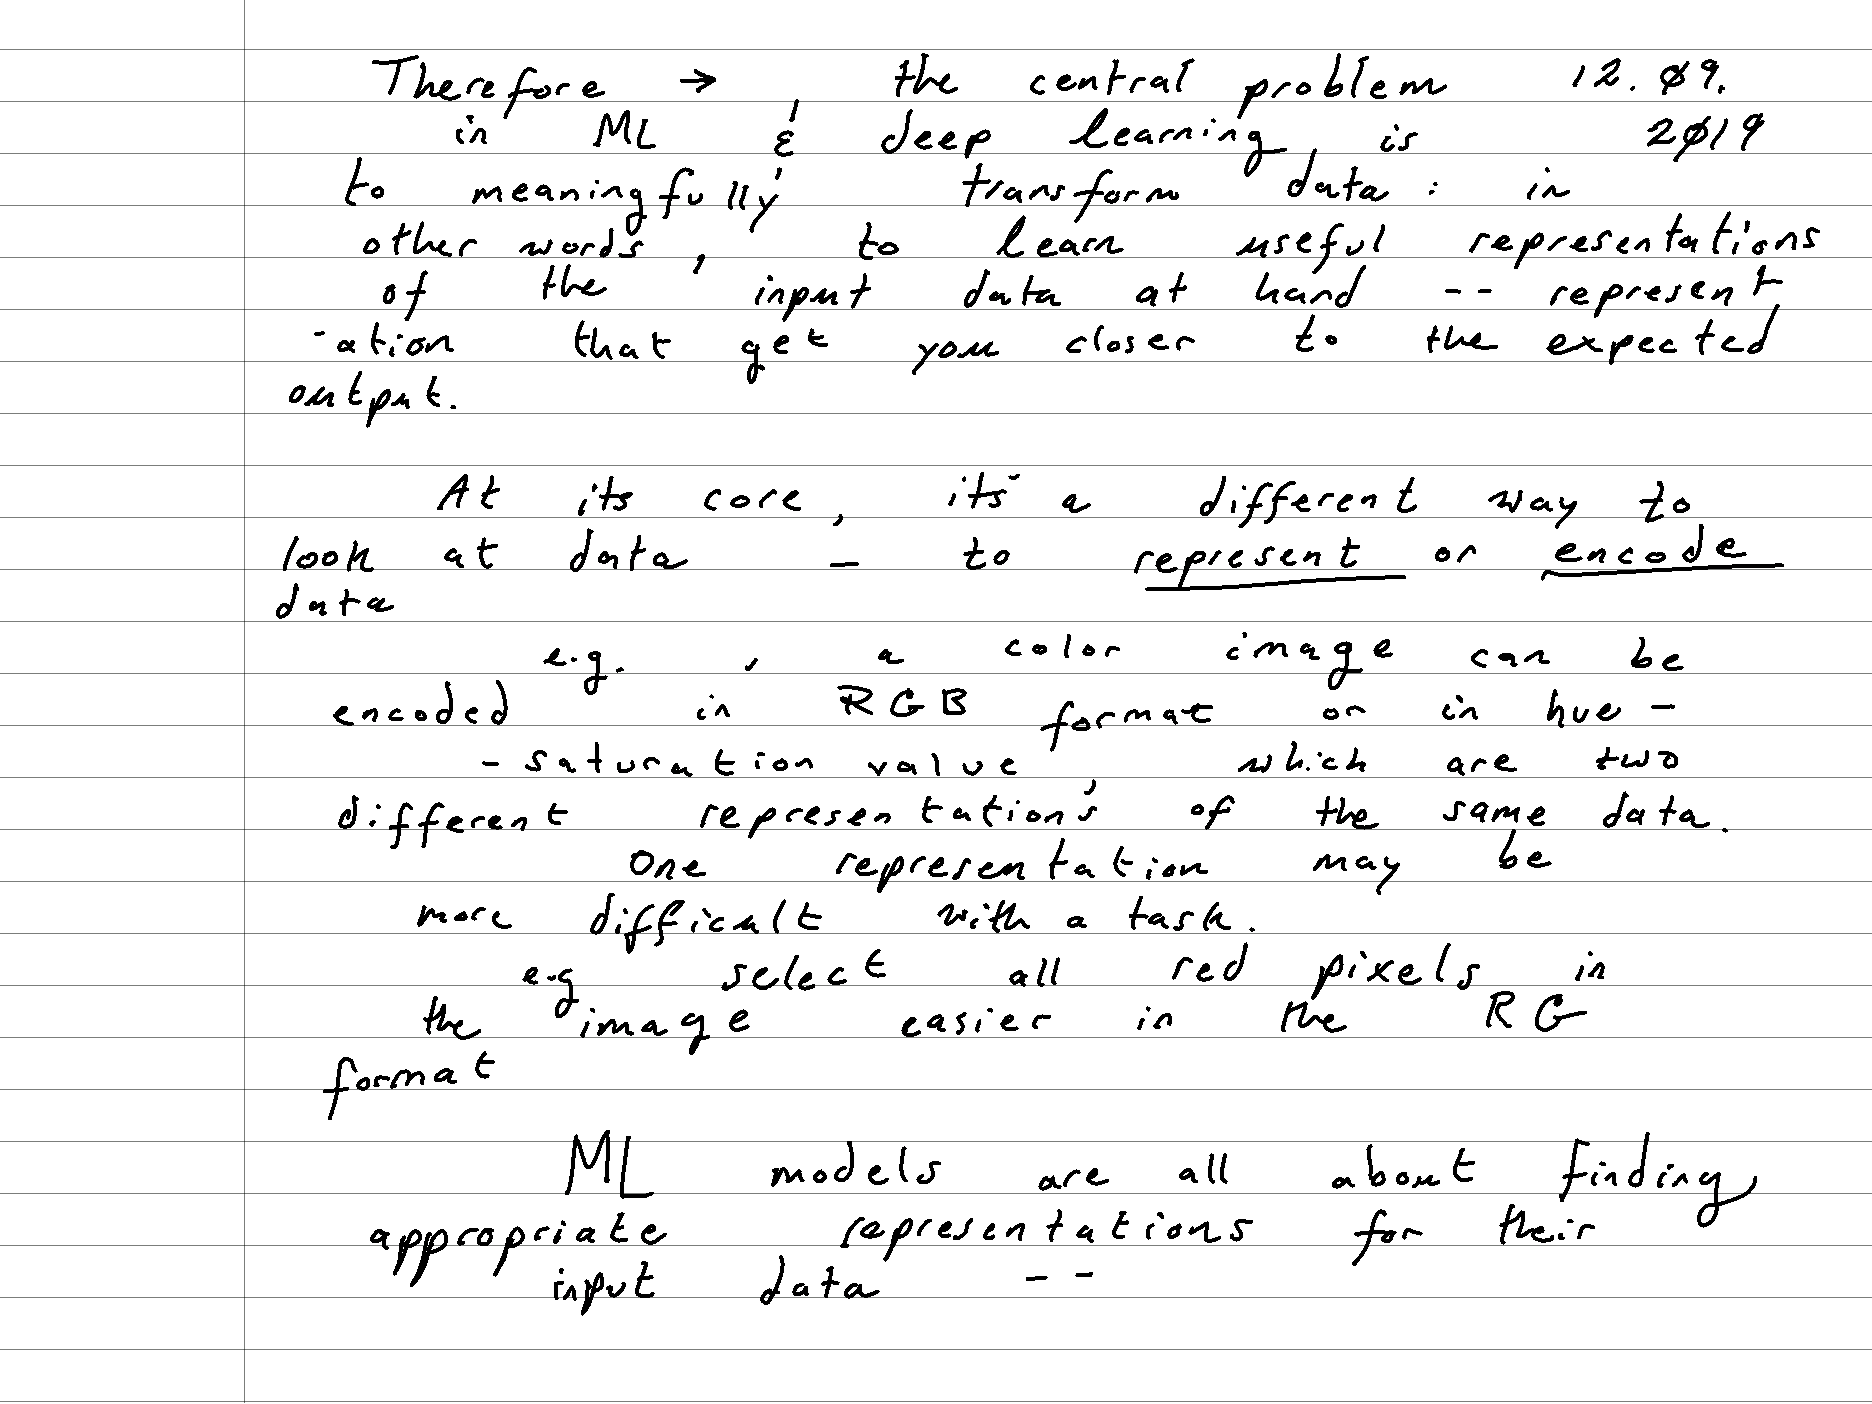 Therefore → , the central problem 12.09.
in ML & deep learning is 2019
to meaningfully transform data: in
other words, to learn useful representations
of the input data at hand -- represent
-ation that get you closer to the expected
output.
At its core, its a different way to
look at data – to represent or encode
data
e.g. , a color image can be
encoded in RGB format or in hue -
- saturation value, which are two
different representations of the same data.
One representation may be
more difficult with a task.
e.g select all red pixels in
the image easier in the RG
format
ML models are all about finding
appropriate representations for their
input data --